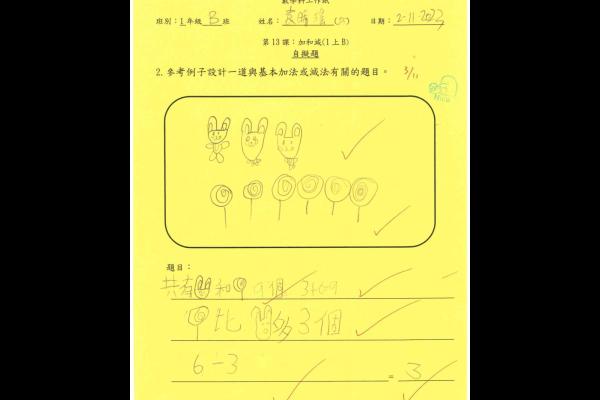 數學科工作紙
班別：1年級 B班 姓名： 日期：2-11-2022
第13課：加和減(1上B)
自擬題
2. 參考例子設計一道與基本加法或減法有關的題目。 3/11
Nice
題目：
共有 和 9個 3+6=9
比 多3個
6-3 = 3